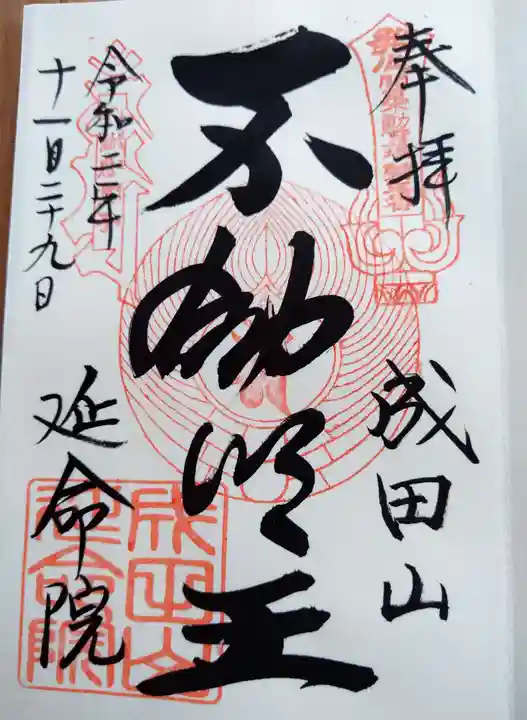 奉拝
成田山
不動明王
令和二年
十一月二十九日
延命院
成田山
延命院